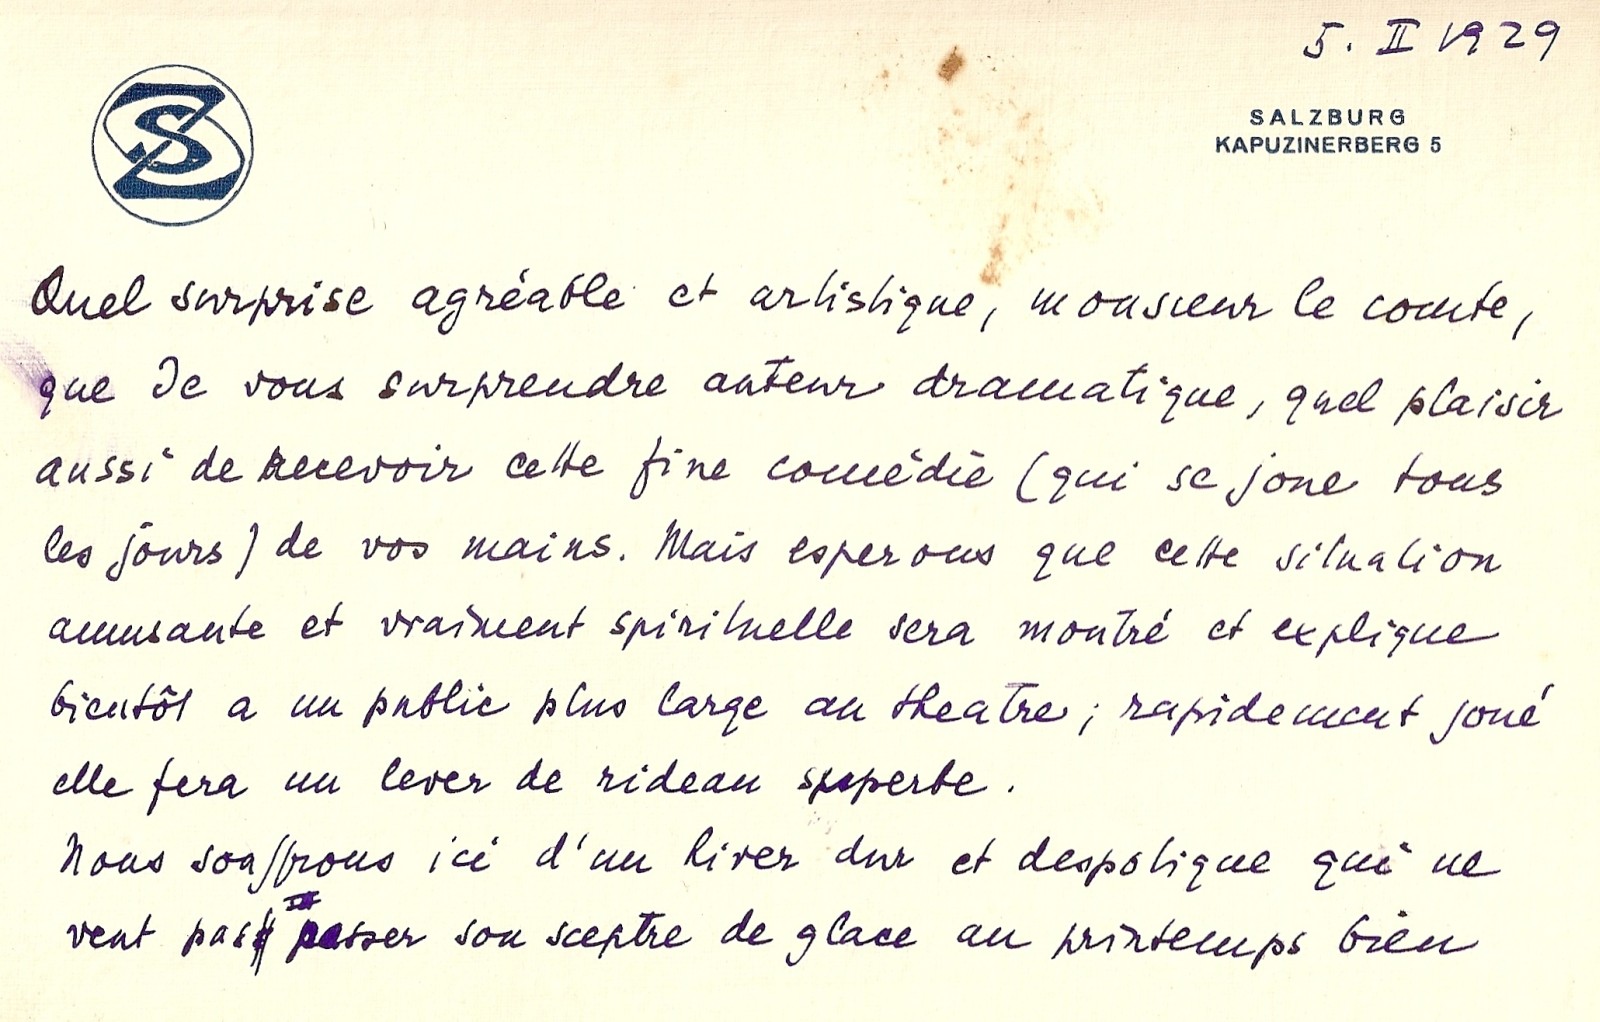 5. II 1929
SZ
SALZBURG
KAPUZINERBERG 5
Quel surprise agréable et artistique, monsieur le comte,
que Je vous surprendre auteur dramatique, quel plaisir
aussi de recevoir cette fine comédie (qui se joue tous
les jours) de vos mains. Mais esperons que cette situation
amusante et vraiment spirituelle sera montré et explique
bientôt a un public plus large au theatre; rapidement joué
elle fera un lever de rideau superbe.
Nous souffrons ici d'un hiver dur et despotique qui ne
veut pas passer son sceptre de glace au printemps bien